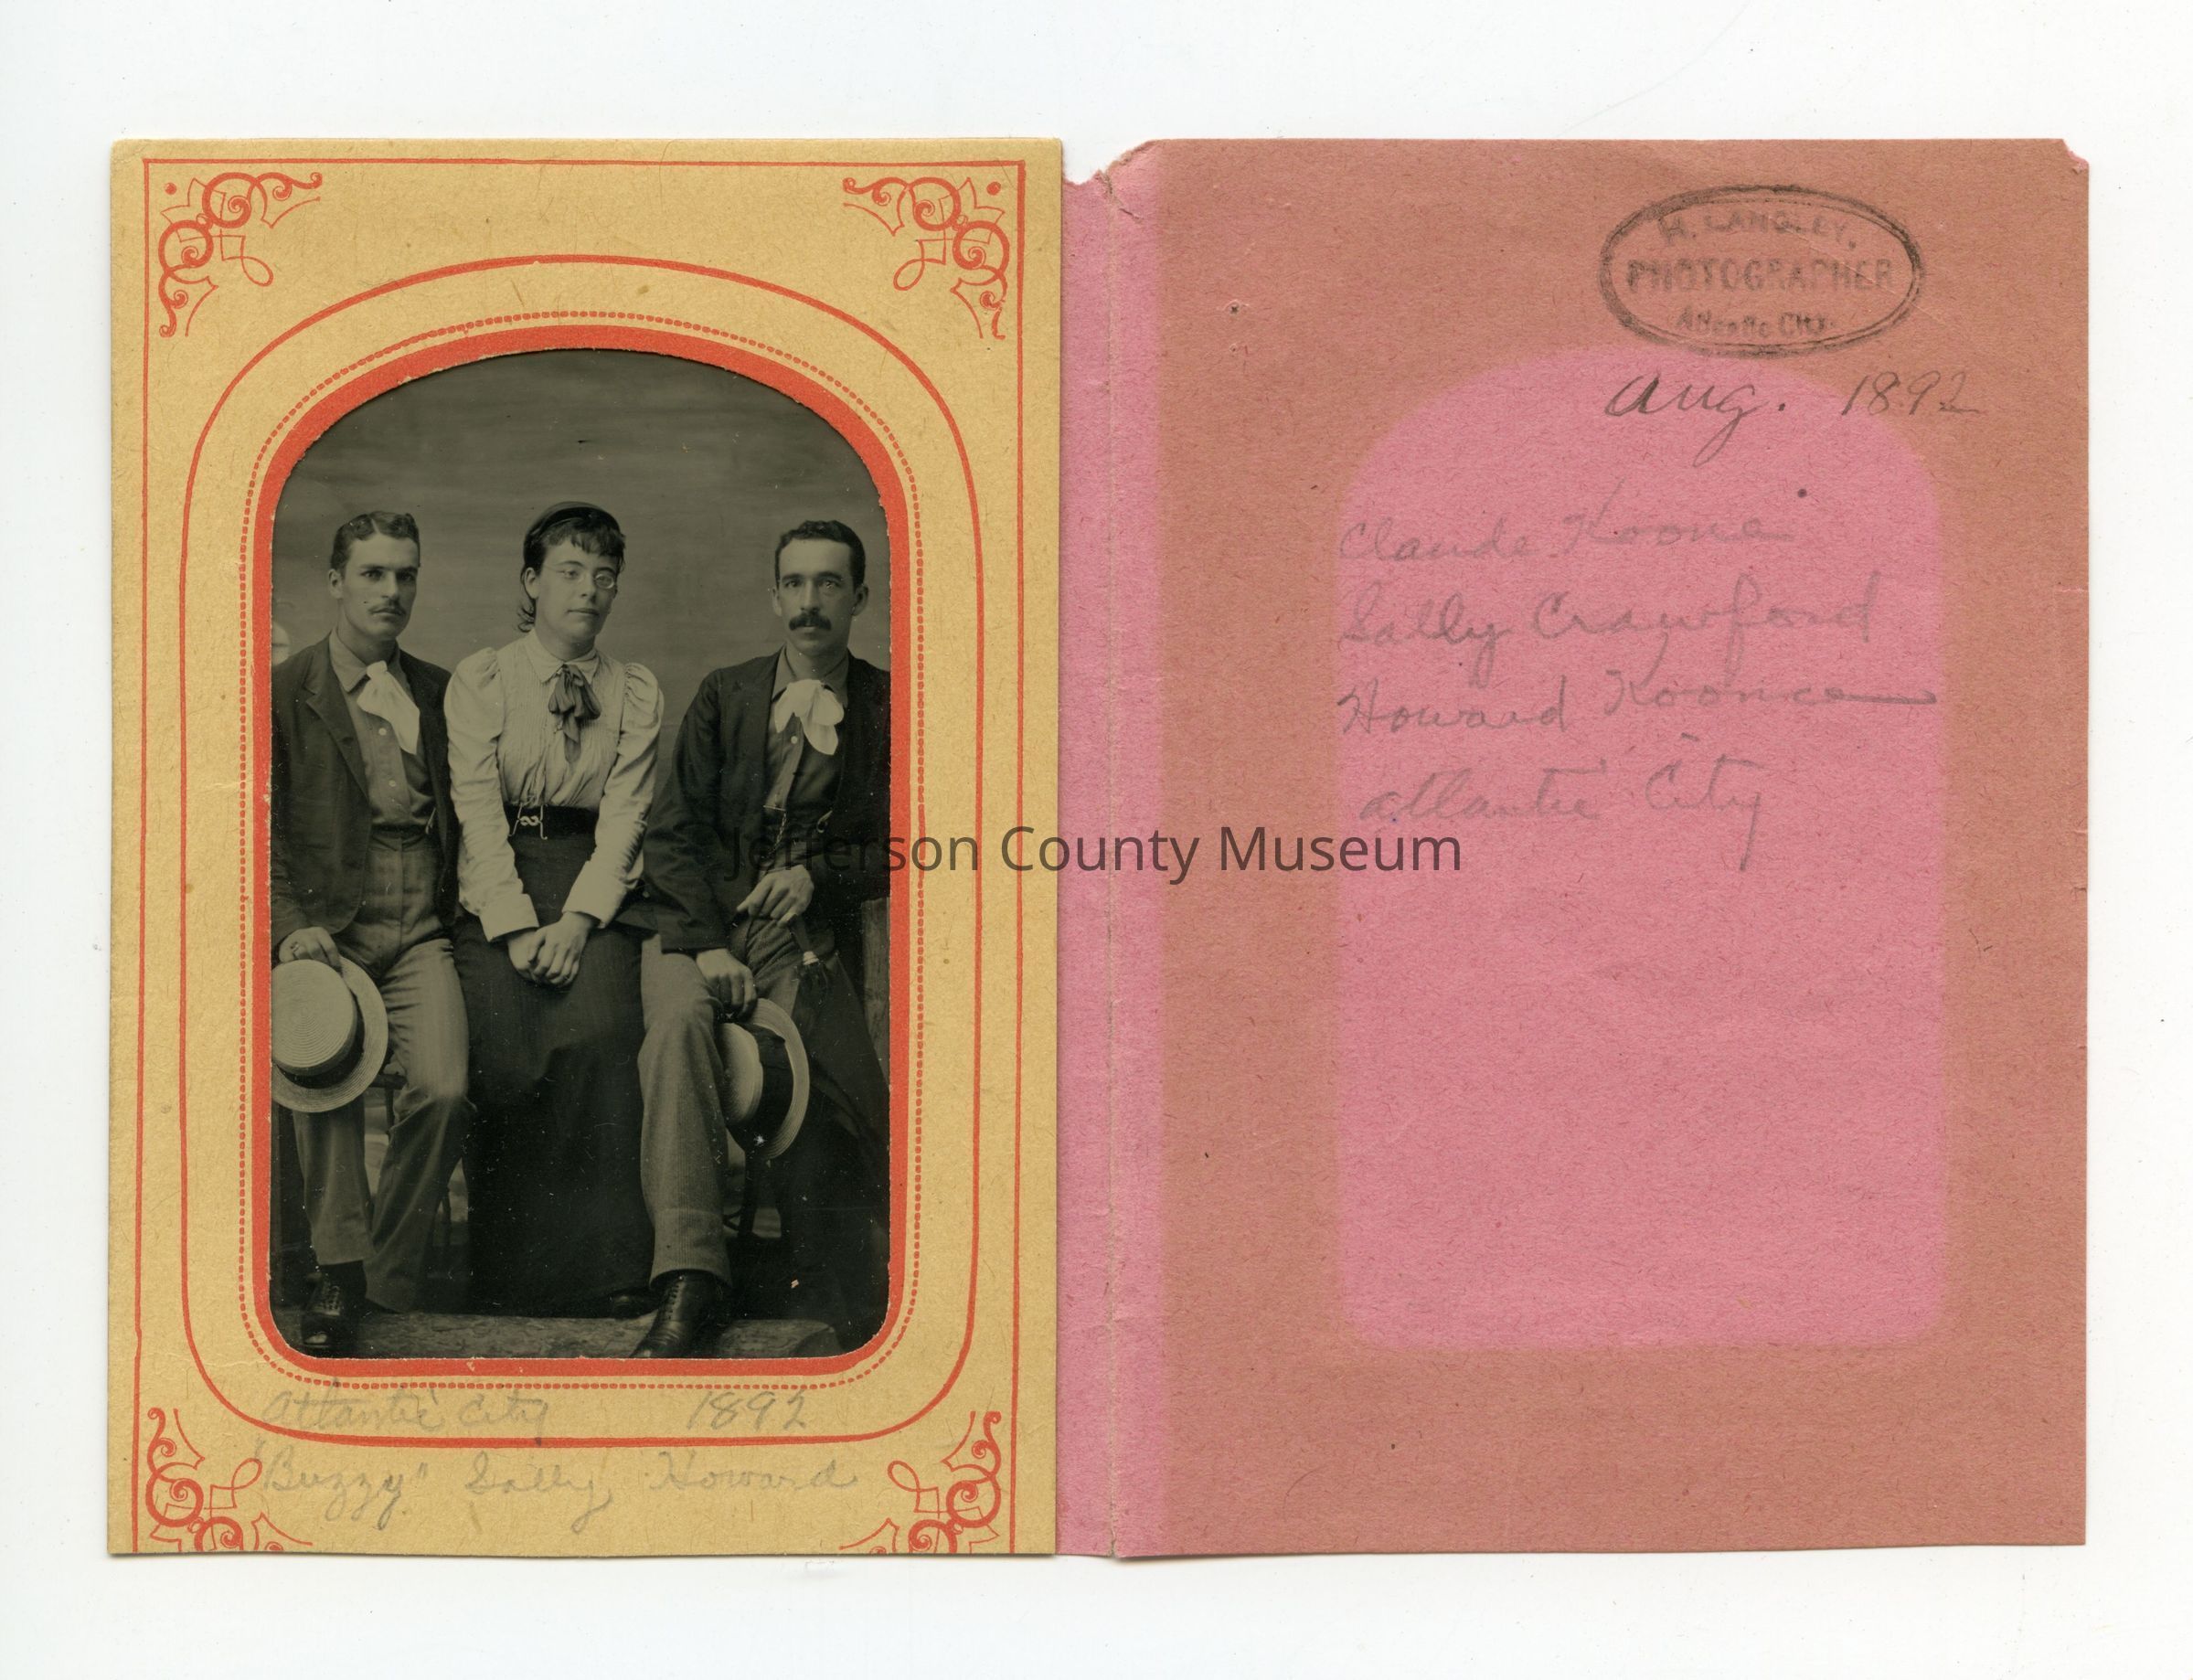 Atlantic City 1892
"Buzzy" Sally Howard
H. LANGLEY,
PHOTOGRAPHER
Atlantic City.
Aug. 1892
Claude Koonce
Sally Crawford
Howard Koonce
Atlantic City
Jefferson County Museum